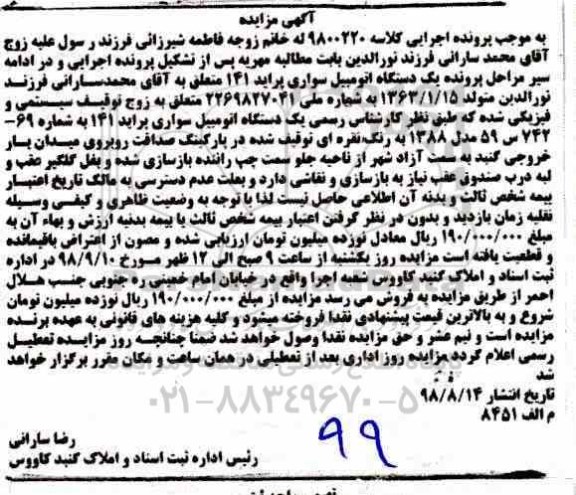 آگهی مزایده
به موجب پرونده اجرایی کلاسه ۹۸۰۰۲۲۰ له خانم زوجه فاطمه شیرزائی فرزند ر سول علیه زوج
آقای محمد سارانی فرزند نورالدین بابت مطالبه مهریه پس از تشکیل پرونده اجرایی و در ادامه
سیر مراحل پرونده یک دستگاه اتومبیل سواری پراید ۱۴۱ متعلق به آقای محمدسارانی فرزند
نورالدین متولد ۱۳۶۳/۱/۱۵ به شماره ملی ۲۲۶۹۸۲۷۰۴۱ متعلق به زوج توقیف سیستمی و
فیزیکی شده که طبق نظر کارشناس رسمی یک دستگاه اتومبیل سواری پراید ۱۴۱ به شماره ۶۹-
۷۴۲ س ۵۹ مدل ۱۳۸۸ به رنگ نقره ای توقیف شده در پارکینگ صداقت روبروی میدان بار
خروجی گنبد به سمت آزاد شهر از ناحیه جلو سمت چپ راننده بازسازی شده و بغل گلگیر عقب و
لبه درب صندوق عقب نیاز به بازسازی و نقاشی دارد و بعلت عدم دسترسی به مالک تاریخ اعتبار
بیمه شخص ثالث و بدنه آن اطلاعی حاصل نیست لذا با توجه به وضعیت ظاهری و کیفی وسیله
نقلیه زمان بازدید و بدون در نظر گرفتن اعتبار بیمه شخص ثالث یا بیمه بدنیه ارزش و بهاء آن به
مبلغ ۱۹۰/۰۰۰/۰۰۰ ریال معادل نوزده میلیون تومان ارزیابی شده و مصون از اعتراض باقیمانده
و قطعیت یافته است مزایده روز یکشنبه از ساعت ۹ صبح الی ۱۲ ظهر مورخ ۹۸/۹/۱۰ در اداره
ثبت اسناد و املاک گنبد کاووس شعبه اجرا واقع در خیابان امام خمینی ره جنوبی جنب هلال
احمر از طریق مزایده به فروش می رسد مزایده از مبلغ ۱۹۰/۰۰۰/۰۰۰ ریال نوزده میلیون تومان
شروع و به بالاترین قیمت پیشنهادی نقدا فروخته میشود و کلیه هزینه های قانونی به عهده برنده
مزایده است و نیم عشر و حق مزایده نقدا وصول خواهد شد ضمنا چنانچه روز مزایده تعطیل
رسمی اعلام گردد مزایده روز اداری بعد از تعطیلی در همان ساعت و مکان مقرر برگزار خواهد
شد
تاریخ انتشار ۹۸/۸/۱۴
م الف ۸۴۵۱
۰۲۱-۸۸۳۴۹۶۷۰-۵
۹۹
رضا سارانی
رئیس اداره ثبت اسناد و املاک گنبد کاووس